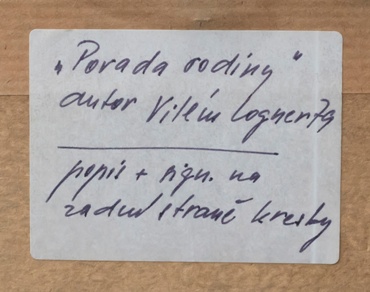 „Porada rodiny"
autor Vilém Wagner 79
popis + sign. na
zadní straně kresby